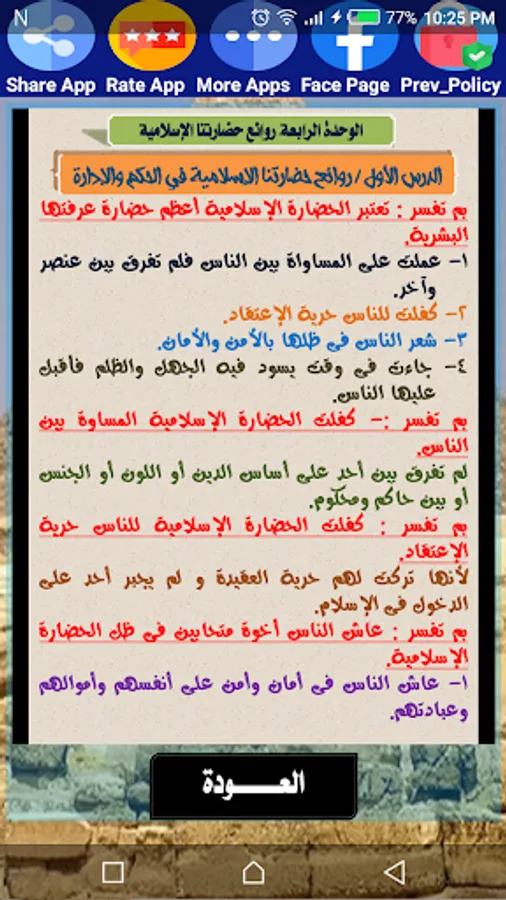 N 77% 10:25 PM
Share App Rate App More Apps Face Page Prev_Policy
الوحدة الرابعة روائع حضارتنا الإسلامية
الدرس الأول / روائع حضارتنا الاسلامية في الحكم والادارة
بم تفسر : تعتبر الحضارة الإسلامية أعظم حضارة عرفتها
البشرية.
١- عملت على المساواة بين الناس فلم تفرق بين عنصر
وآخر.
٢- كفلت للناس حرية الإعتقاد.
٣- شعر الناس فى ظلها بالأمن والأمان.
٤- جاءت فى وقت يسود فيه الجهل والظلم فأقبل
عليها الناس.
بم تفسر :- كفلت الحضارة الإسلامية المساوة بين
الناس.
لم تفرق بين أحد على أساس الدين أو اللون أو الجنس
أو بين حاكم ومحكوم.
بم تفسر : كفلت الحضارة الإسلامية للناس حرية
الإعتقاد.
لأنها تركت لهم حرية العقيدة و لم يجبر أحد على
الدخول فى الإسلام.
بم تفسر : عاش الناس أخوة متحابين فى ظل الحضارة
الإسلامية.
١- عاش الناس فى أمان وأمن على أنفسهم وأموالهم
وعبادتهم.
العـــودة